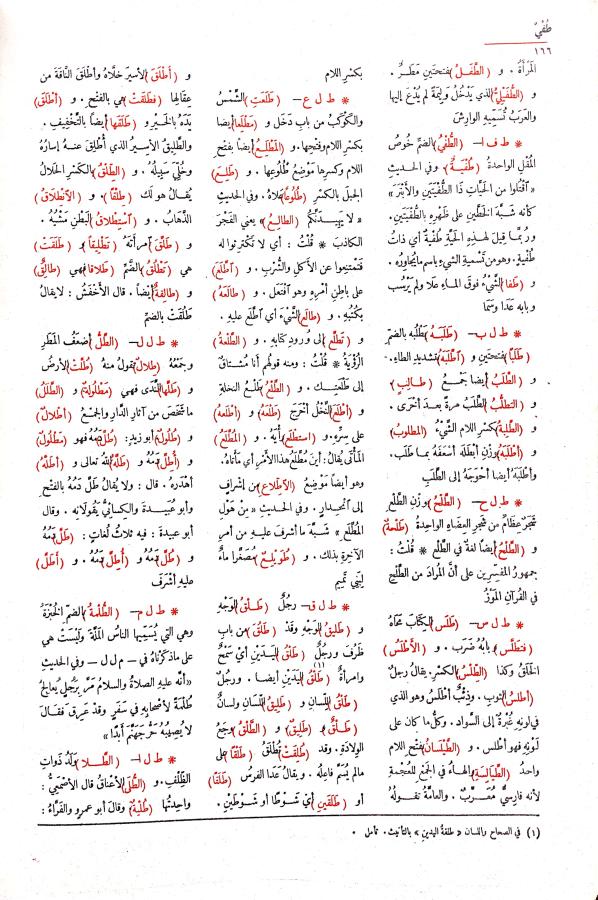 طُفْيٌ
١٦٦
المَرْأَةُ . و (الطَّفَلُ) بفتحتين مَطَرٌ .
و (الطُّفَيْلِيُّ) الذي يَدْخُل وَلِيمَةً لم يُدْعَ إليها
والعَرَبُ تُسَمِّيه الوَارِشَ
* ط ف ا — (الطُّفْيُ) بالضم خُوصُ
المُقْلِ الواحدةُ (طُفْيَةٌ) . وفي الحديثِ
« اُقْتُلُوا من الحَيَّاتِ ذَا الطُّفْيَتَيْنِ والأَبْتَرَ »
كأنه شَبَّهَ الخَطَّيْنِ على ظَهْرِهِ بالطُّفْيَتَيْنِ .
ورُبَّما قِيلَ لِهذِهِ الحَيَّةِ طُفْيَةٌ أي ذاتُ
طُفْيَةٍ . وهو من تَسْمِيةِ الشيءِ باسم ما يُجاوِرُه .
و (طَفَا) الشَّيْءُ فوقَ الماءِ عَلَا ولم يَرْسُبْ
وبابه عَدَا وسَمَا
* ط ل ب — (طَلَبَهُ) يَطْلُبه بالضم
(طَلَباً) بفتحتين و (اطَّلَبَهُ) بتشديدِ الطاءِ .
و (الطَّلَبُ) أيضا جَمْعُ (طَالِبٍ)
و (التَطلُّبُ) الطَّلَبُ مرةً بعدَ أُخْرَى .
و (الطَّلِبةُ) بكسرِ اللام الشَّيْءُ (المطلوبُ)
و (أَطْلَبَهُ) بوزن أَبْطَلَهُ أَسْعَفَهُ بما طَلَب .
وأَطْلَبَهُ أيضا أحْوَجَهُ إلى الطَّلَبِ
* ط ل ح — (الطَّلْحُ) بوَزْنِ الطَّلْعِ
شَجَرٌ عِظَامٌ من شَجرِ العِضَاهِ الواحدةُ (طَلْحةٌ)
و (الطَّلْحُ) أيضًا لغةٌ في الطَّلْعِ * قُلْتُ :
جمهورُ المفَسِّرين على أنَّ المرادَ من الطَّلْحِ
في القرآنِ المَوْزُ
* ط ل س — (طَلَسَ) الكِتابَ مَحَاهُ
(فتَطَلَّسَ) وبابُه ضَرَب . و (الأَطْلَسُ)
الخَلَقُ وكذا (الطِّلْسُ) بالكسرِ يقالُ رجلٌ
(أَطلَسُ) الثوبِ . وذِئْبٌ أطْلَسُ وهو الذي
في لونِهِ غُبْرَةٌ إلى السَّوادِ . وكلُّ ما كان على
لَوْنِهِ فهو أَطْلَسُ . و (الطَّيْلَسَانُ) بفتح اللام
واحدُ (الطَّيَالِسَةِ) والهاءُ في الجَمْعِ للعُجْمةِ
لأنه فارسيٌّ مُعَرَّبٌ . والعامَّةُ تقولُهُ
بكسرِ اللام
* ط ل ع — (طَلَعَتِ) الشَّمْسُ
والكَوْكَبُ من باب دَخَل و (مَطْلَعاً) أيضا
بكسر اللامِ وفتحِها . و (المَطْلِعُ) أيضًا بفتح
اللام وكسرها مَوْضِعُ طُلُوعِها . و (طَلِعَ)
الجبلَ بالكسر (طُلُوعاً) عَلَاهُ . وفي الحديث
« لا يَهِيدَنَّكُمُ (الطَالِعُ) » يعني الفَجْرَ
الكاذبَ * قُلْتُ : أي لا تَكْتَرِثُوا له
فتَمْتَنِعوا عن الأكلِ والشُّرْبِ . و (اطَّلَعَ)
على باطِنِ أمْرِهِ وهو افْتَعَل . و (طَالَعَهُ)
بِكُتُبِه . و (طالَع) الشَّيْءَ أي اطَّلَع عليه .
و (تَطَلَّع) إلى وُرودِ كِتَابِه . و (الطَّلْعةُ)
الرُّؤْيةُ * قُلْتُ : ومنه قولُهم أنا مُشْتاقٌ
إلى طَلْعَتِكَ . و (الطَّلْعُ) طَلْعُ النخلةِ
و (أَطْلَع) النَّخْلُ أَخْرَجَ (طَلْعَهُ) و (أَطْلَعَهُ)
على سِرِّهِ . و (اسْتطلَعَ) رأْيَهُ . و (المُطَّلَعُ)
المَأْتَى يُقالُ : أينَ مُطَّلَعُ هذا الأَمْرِ أي مَأْتَاهُ .
وهو أيضاً مَوْضِعُ (الاِطِّلاعِ) من إشرافٍ
إلى انحِدارٍ . وفي الحديث « مِنْ هَوْلِ
المُطَّلَعِ » شَبَّهَ ما أَشْرَفَ عليه من أمرِ
الآخِرَةِ بذلك . و (طُوَيْلِعٌ) مُصَغَّراً ماءٌ
لِبَني تَمِيمٍ
* ط ل ق — رجُلٌ (طَلْقُ) الوَجْهِ
و (طَلِيقُ) الوَجْهِ وقَدْ (طَلُقَ) من بابِ
ظَرُفَ ورجُلٌ (طَلْقُ) اليَدَيْنِ أيْ سَمْحٌ
وامرأةٌ (طَلْقُ) (١) اليَدَيْنِ أيضا . ورجُلٌ
(طَلْقُ) اللِّسانِ و (طَلِيقُ) اللسان ولسانٌ
(طَلْقٌ) و (طَلِيقٌ) . و (الطَّلْقُ) وَجَعُ
الوِلادةِ . وقد (طُلِقَتْ) تُطْلَقُ (طَلْقاً) على
مالم يُسَمَّ فاعِلُه . ويقالُ عَدَا الفَرَسُ (طَلَقًا)
أو (طَلَقَيْنِ) أيْ شَوْطاً أو شَوْطَيْنِ .
و (أَطْلَقَ) الأَسِيرَ خَلَّاهُ وأطْلَقَ النَّاقةَ من
عِقالِها (فطَلَقَتْ) هي بالفتحِ . و (أطْلَقَ)
يَدَهُ بالخَيْرِ و (طَلَقَها) أيضاً بالتَّخْفِيفِ .
والطَّلِيقُ الأسِيرُ الذي أُطْلِقَ عنهُ إسارُهُ
وخُلِّيَ سَبِيلُهُ . و (الطِّلْقُ) بالكَسْرِ الحَلالُ
يُقالُ هو لك (طِلْقاً) . و (الاِنْطِلاقُ)
الذَّهابُ . و (اسْتِطْلاقُ) البَطْنِ مَشْيُهُ .
و (طَلَّقَ) امرأتَهُ (تطليقاً) و (طَلَقَتْ)
هي (تَطْلُقُ) بالضَّمِّ (طَلاقا) فهي (طالِقٌ)
و (طالِقةٌ) أيضاً . قال الأخْفَشُ : لا يقالُ
طَلُقَتْ بالضم
* ط ل ل — (الطَّلُّ) أضعَفُ المَطَرِ
وجَمْعُهُ (طِلالٌ) تقولُ منهُ (طُلَّتِ) الأرضُ
و (طَلَّها) النَّدَى فهي (مَطلُولةٌ) و (الطَّلَلُ)
ما شَخَصَ من آثارِ الدَّارِ والجَمْعُ (أطْلالٌ)
و (طُلُولٌ) أبو زيدٍ : (طُلَّ) دَمُهُ فهو (مَطْلُولٌ)
و (أُطِلَّ) دَمُهُ و (طَلَّهُ) اللهُ تعالى و (أَطَلَّهُ)
أهْدَرَهُ . قال : ولا يقالُ طَلَّ دَمُهُ بالفتحِ
وأبو عُبَيدةَ والكِسائيُّ يقُولَانِه . وقال
أبو عبيدة : فيه ثلاثُ لُغاتٍ : (طَلَّ) دَمُهُ
و (طُلَّ) دَمُهُ و (أُطِلَّ) دَمُهُ . و (أَطَلَّ)
عليه أشْرَفَ
* ط ل م — (الطُّلْمةُ) بالضَّمِّ الخُبْزَةُ
وهي التي يُسَمِّيها الناسُ المَلَّةَ ولَيْسَتْ هي
على ما ذكرْناهُ في — م ل ل — وفي الحديثِ
« أنه عليهِ الصلاةُ والسلامُ مَرَّ برَجُلٍ يُعالِجُ
طُلْمةً لأصْحابِهِ في سَفَرٍ وقد عَرِقَ فقالَ
لا يُصِيبُهُ حَرُّ جَهَنَّمَ أَبَدًا »
* ط ل ا — (الطَّلا) وَلَدُ ذَواتِ
الظِّلْفِ . و (الطُّلَى) الأَعْناقُ قال الأصْمَعِيُّ :
واحدتُها (طُلْيَةٌ) وقال أبو عمرو والفَرَّاءُ :
(١) في الصحاح واللسان « طلقة اليدين » بالتأنيث . تأمل .